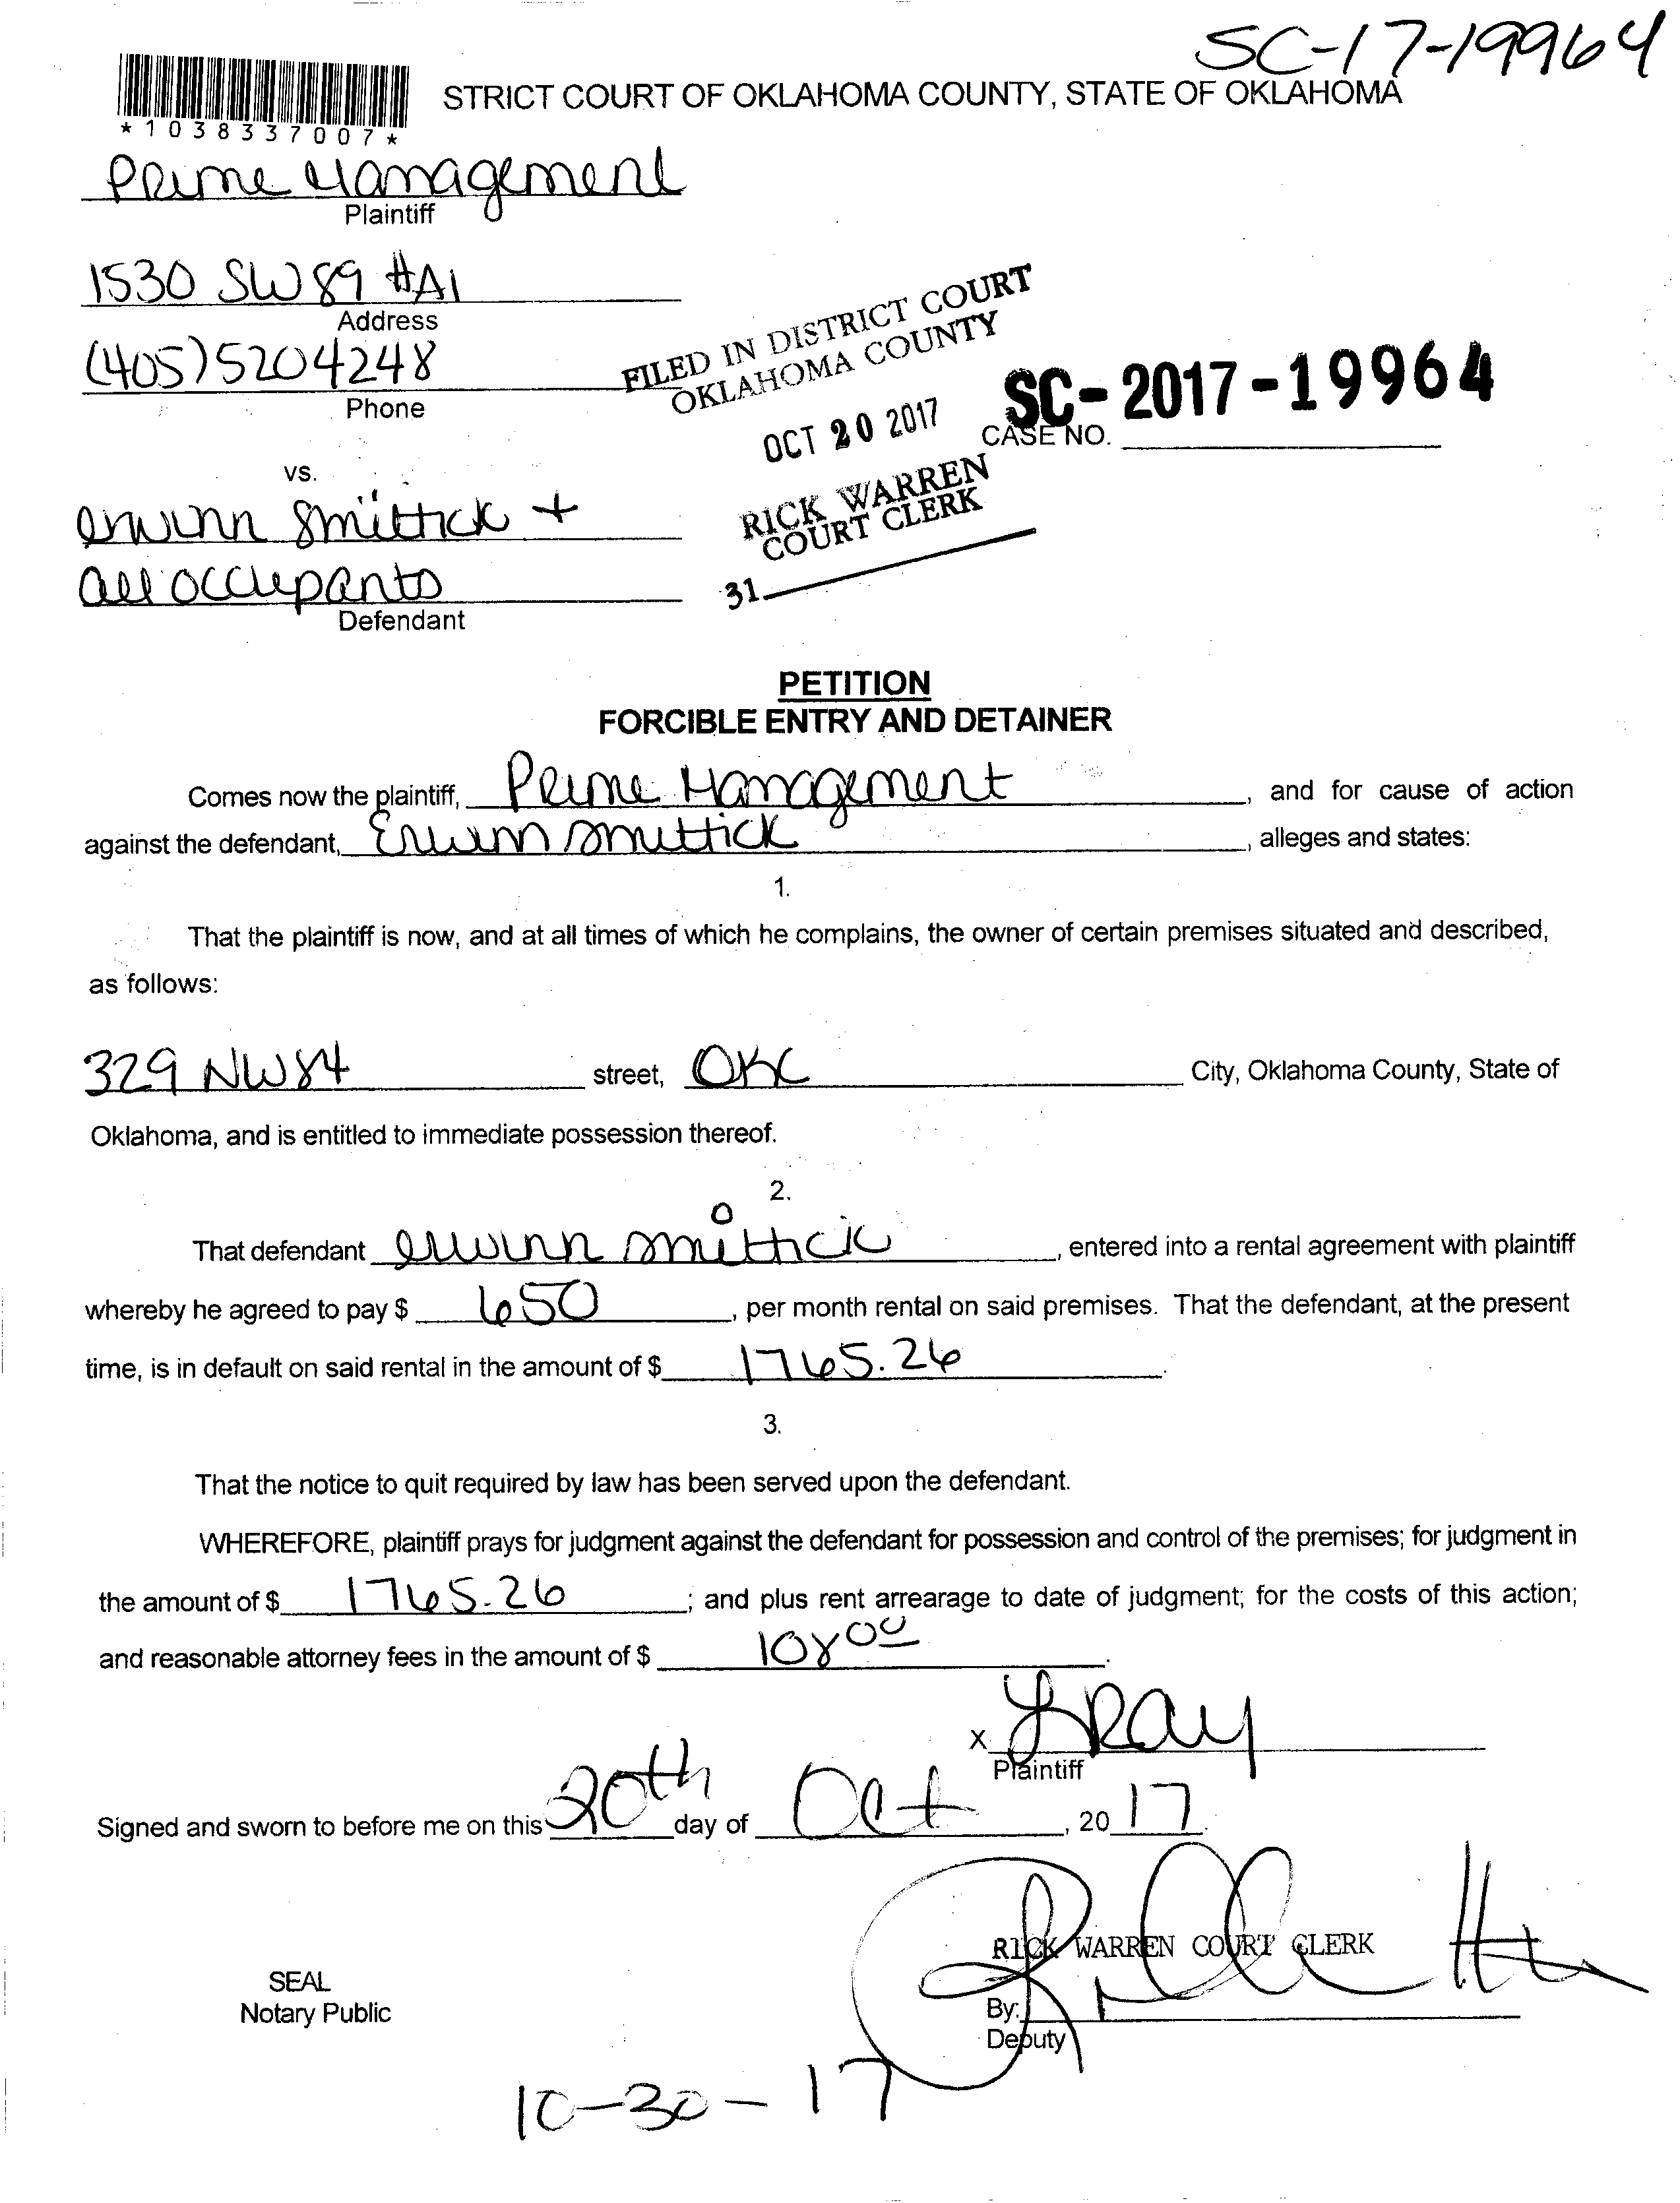 SC-17-19964
STRICT COURT OF OKLAHOMA COUNTY, STATE OF OKLAHOMA
*1038337007*
Prime Management
Plaintiff
1530 SW 89 #A1
Address
(405)5204248
Phone
FILED IN DISTRICT COURT
OKLAHOMA COUNTY
OCT 20 2017
SC-2017-19964
CASE NO.
RICK WARREN
COURT CLERK
31
vs.
erwinn Smittick +
all occupants
Defendant
PETITION
FORCIBLE ENTRY AND DETAINER
Comes now the plaintiff, Prime Management, and for cause of action
against the defendant, Erwinn Smittick, alleges and states:
1.
That the plaintiff is now, and at all times of which he complains, the owner of certain premises situated and described,
as follows:
329 NW 84 street, OKC City, Oklahoma County, State of
Oklahoma, and is entitled to immediate possession thereof.
2.
That defendant erwinn smittick, entered into a rental agreement with plaintiff
whereby he agreed to pay $ 650, per month rental on said premises. That the defendant, at the present
time, is in default on said rental in the amount of $ 1765.26.
3.
That the notice to quit required by law has been served upon the defendant.
WHEREFORE, plaintiff prays for judgment against the defendant for possession and control of the premises; for judgment in
the amount of $ 1765.26; and plus rent arrearage to date of judgment; for the costs of this action;
and reasonable attorney fees in the amount of $ 108 00.
x
Plaintiff
Signed and sworn to before me on this 20th day of Oct, 20 17.
RICK WARREN COURT CLERK
SEAL
Notary Public
By:
Deputy
10-30-17